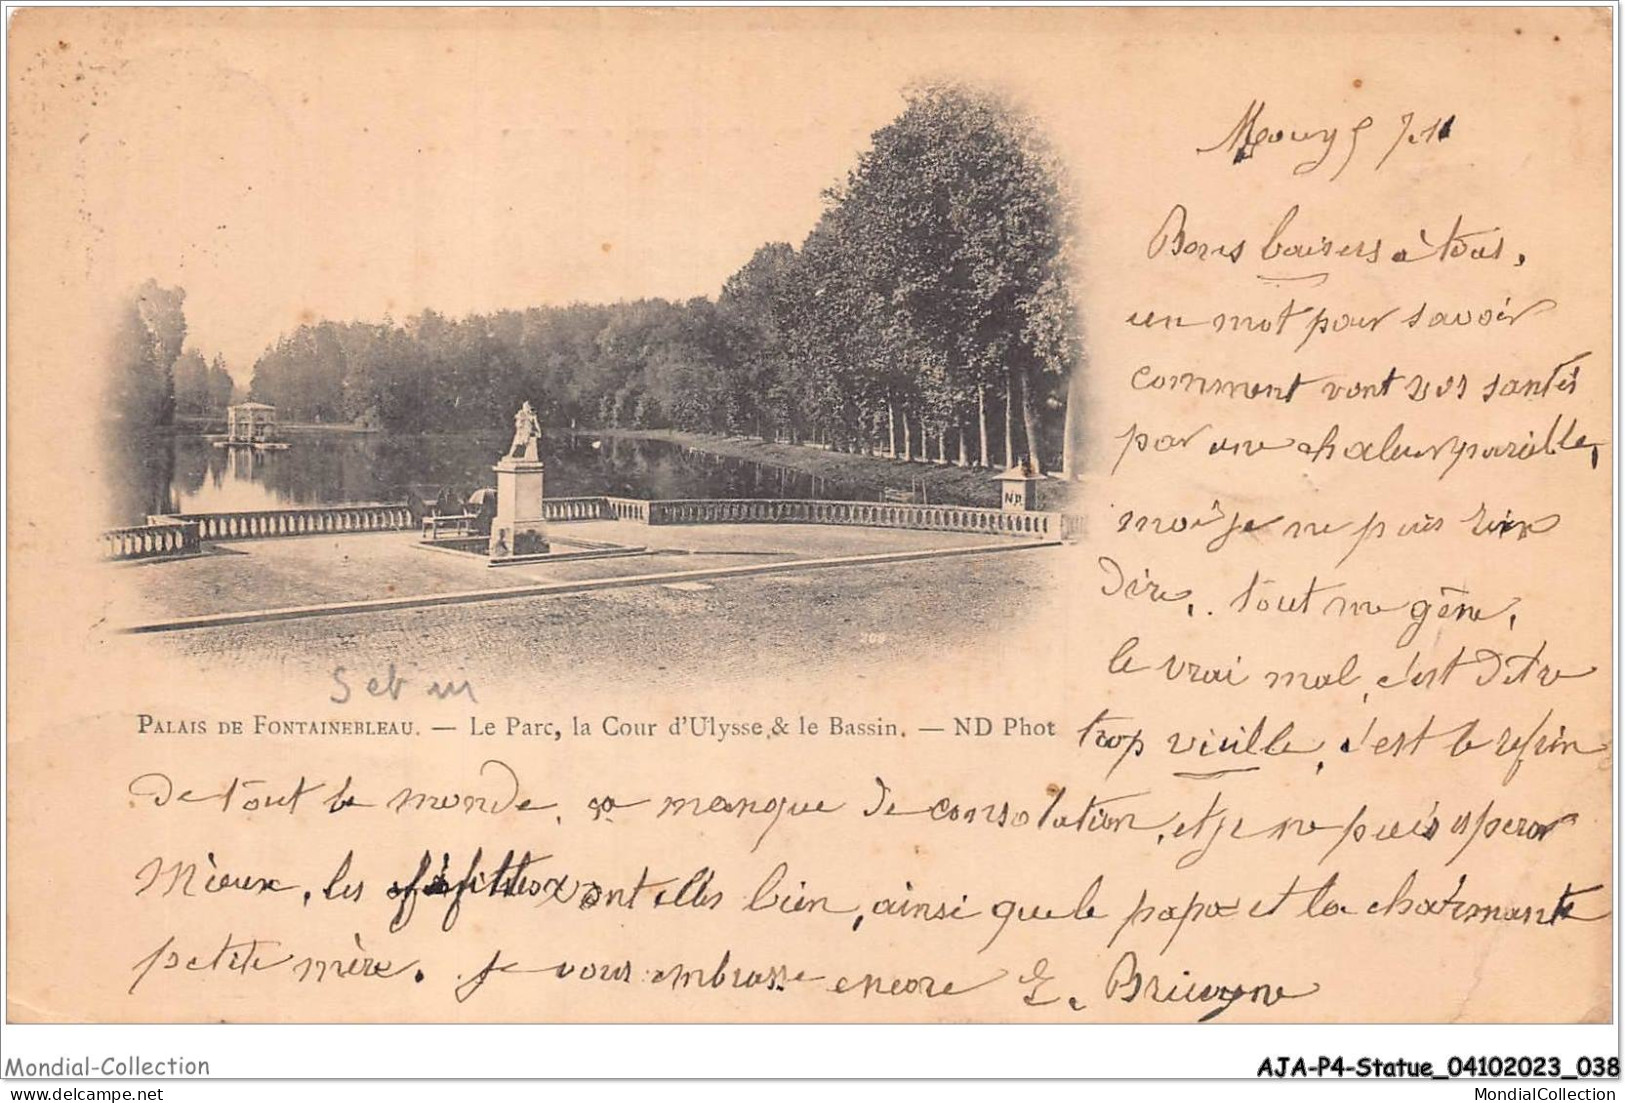 Mouy 5 7.
Bons baisers à tous,
un mot pour savoir
comment vont vos santés
par une chaleur pareille,
moi je ne puis rien
dire.. tout me gêne,
le vrai mal, c'est d'être
trop vieille, c'est le refrin
PALAIS DE FONTAINEBLEAU. — Le Parc, la Cour d'Ulysse & le Bassin. — ND Phot
de tout le monde, ça manque de consolation, et je ne puis esperer
Mieux, les fifilles vont elles bien, ainsi que le papa et la charmante
petite mère. Je vous embrasse encore E.
ND.
209
Mondial-Collection
AJA-P4-Statue_04102023_038
MondialCollection